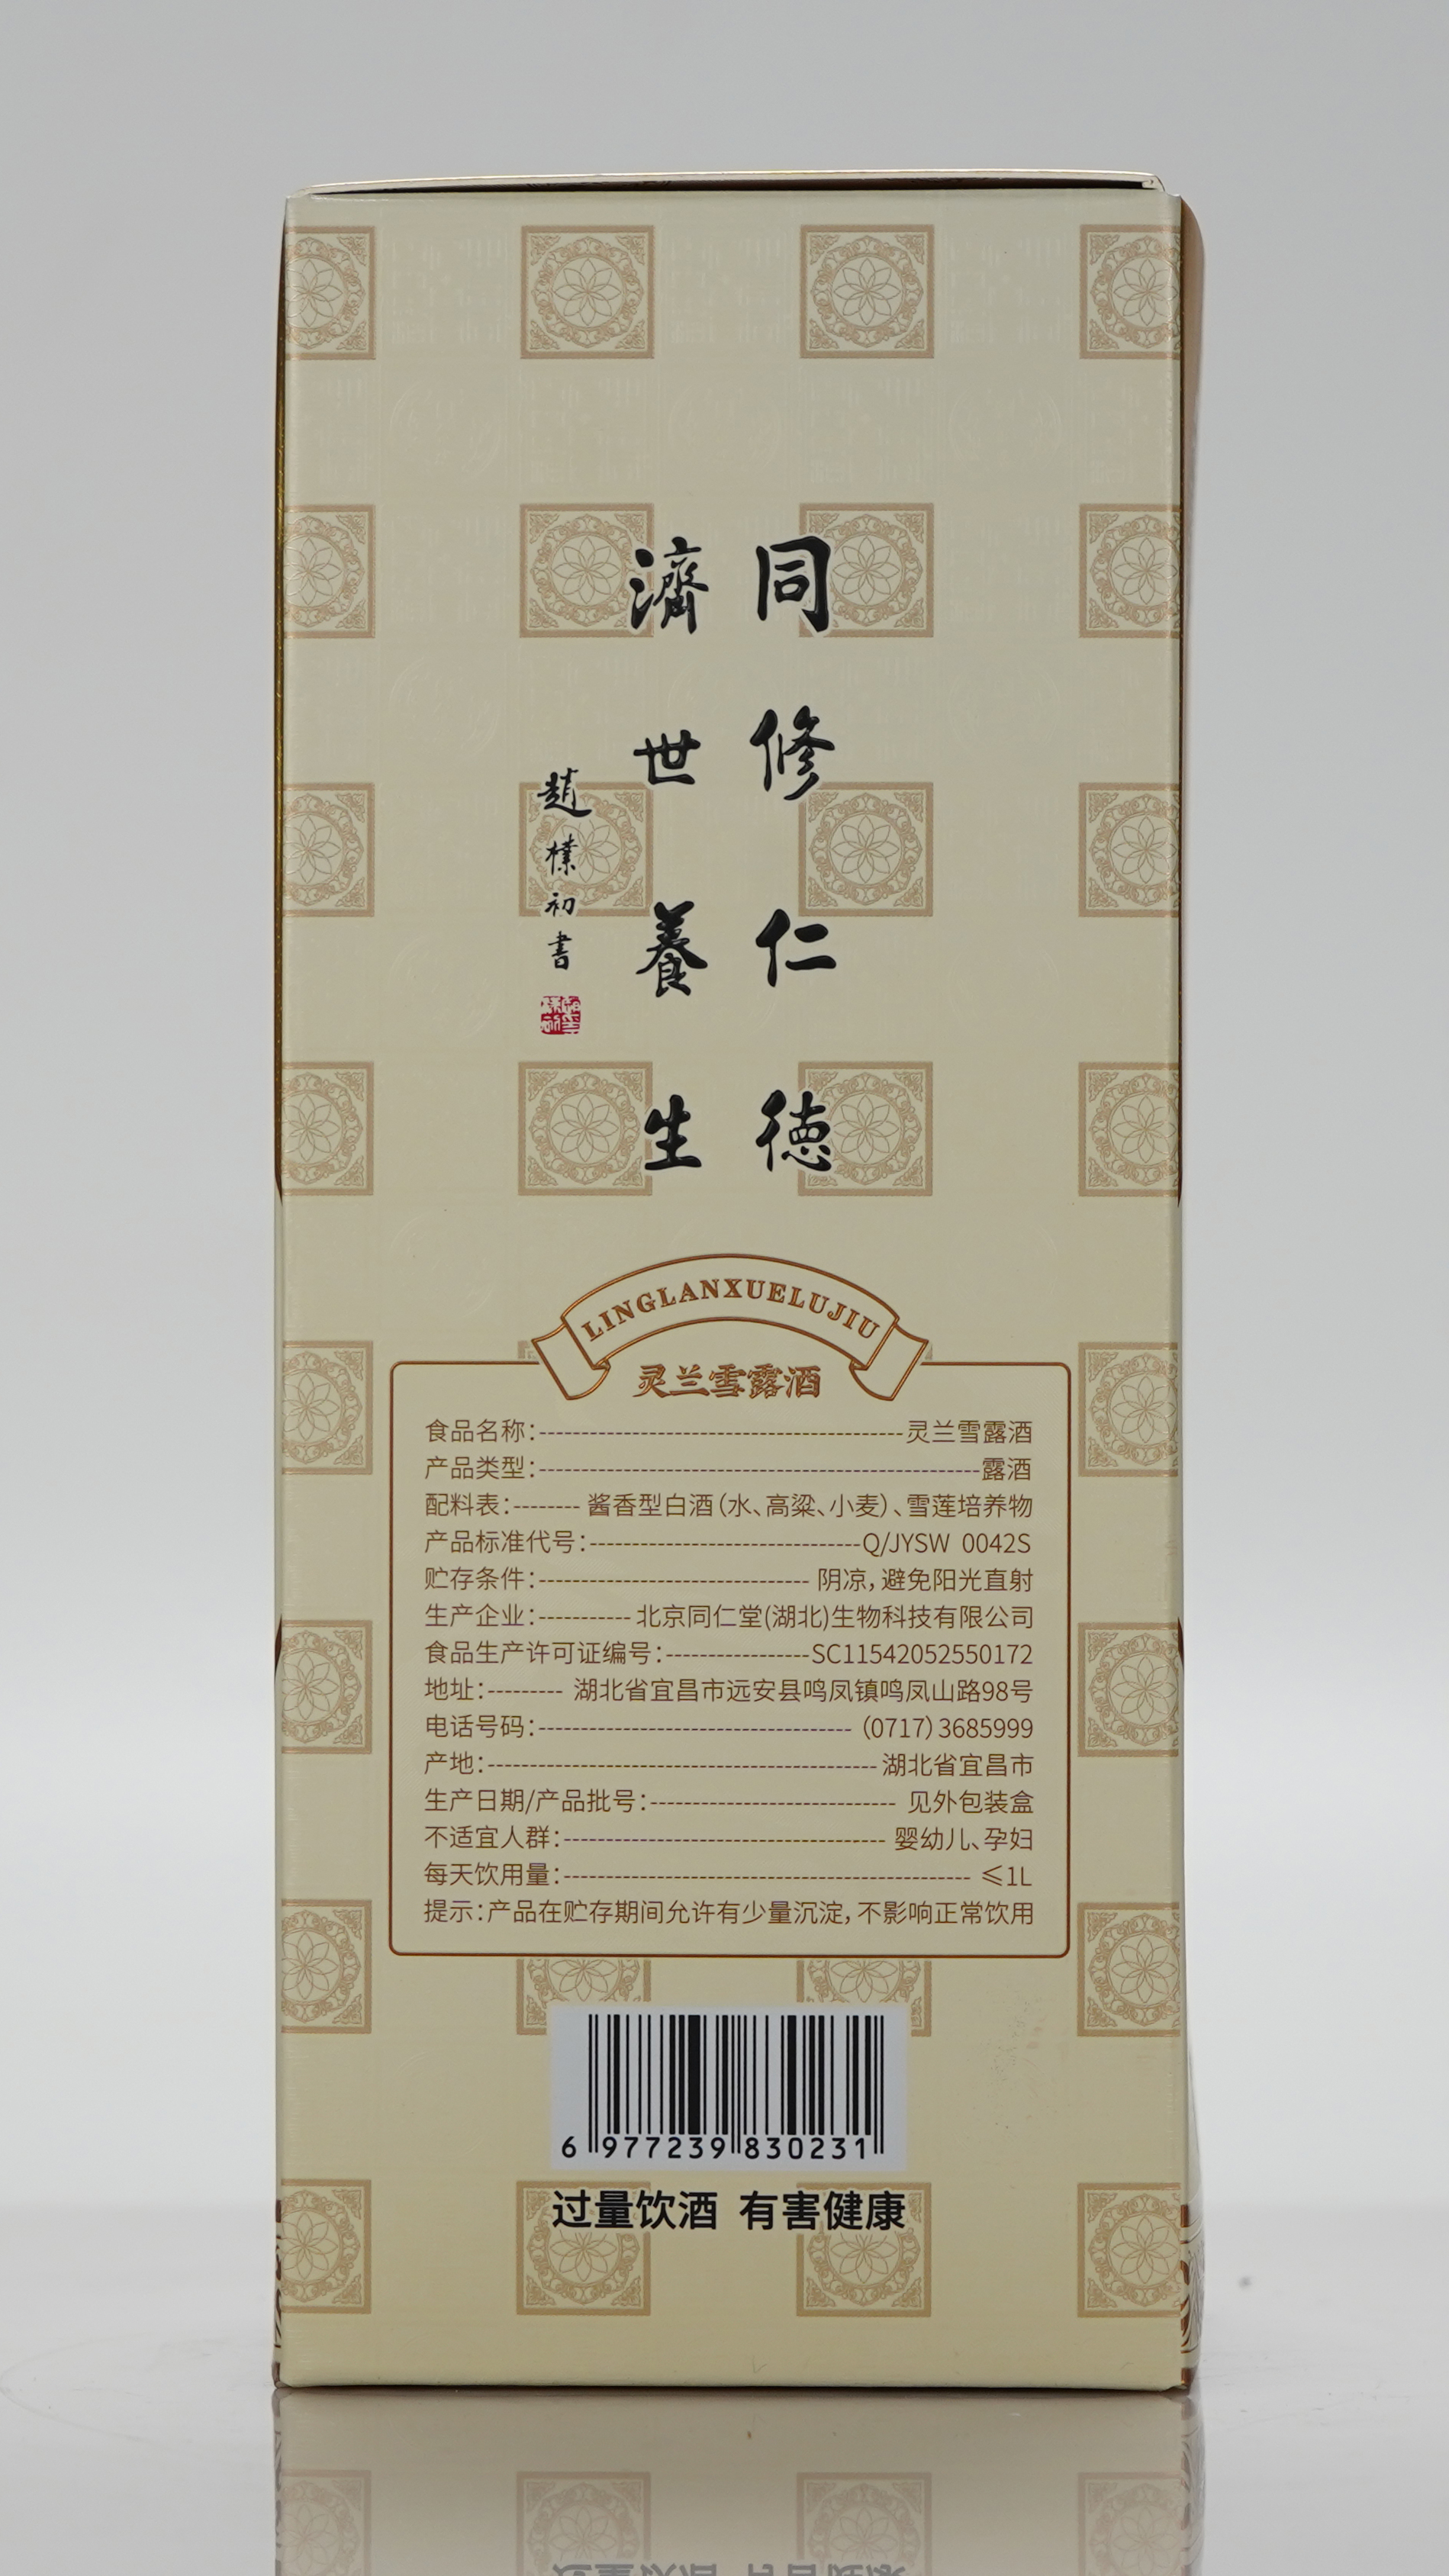 同修仁德
濟世養生
趙樸初書
LINGLANXUELUJIU
灵兰雪露酒
食品名称：灵兰雪露酒
产品类型：露酒
配料表：酱香型白酒（水、高粱、小麦）、雪莲培养物
产品标准代号：Q/JYSW 0042S
贮存条件：阴凉，避免阳光直射
生产企业：北京同仁堂(湖北)生物科技有限公司
食品生产许可证编号：SC11542052550172
地址：湖北省宜昌市远安县鸣凤镇鸣凤山路98号
电话号码：（0717）3685999
产地：湖北省宜昌市
生产日期/产品批号：见外包装盒
不适宜人群：婴幼儿、孕妇
每天饮用量：≤1L
提示：产品在贮存期间允许有少量沉淀，不影响正常饮用
6 977239 830231
过量饮酒 有害健康